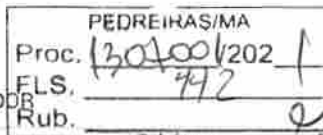 PEDREIRAS/MA
Proc. 1301001/202 1
FLS. 442
DOR
Rub.